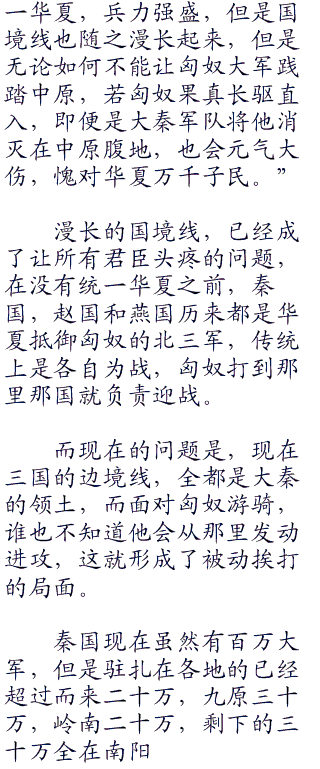 一华夏，兵力强盛，但是国
境线也随之漫长起来，但是
无论如何不能让匈奴大军践
踏中原，若匈奴果真长驱直
入，即便是大秦军队将他消
灭在中原腹地，也会元气大
伤，愧对华夏万千子民。”
漫长的国境线，已经成
了让所有君臣头疼的问题，
在没有统一华夏之前，秦
国，赵国和燕国历来都是华
夏抵御匈奴的北三军，传统
上是各自为战，匈奴打到那
里那国就负责迎战。
而现在的问题是，现在
三国的边境线，全都是大秦
的领土，而面对匈奴游骑，
谁也不知道他会从那里发动
进攻，这就形成了被动挨打
的局面。
秦国现在虽然有百万大
军，但是驻扎在各地的已经
超过而来二十万，九原三十
万，岭南二十万，剩下的三
十万全在南阳